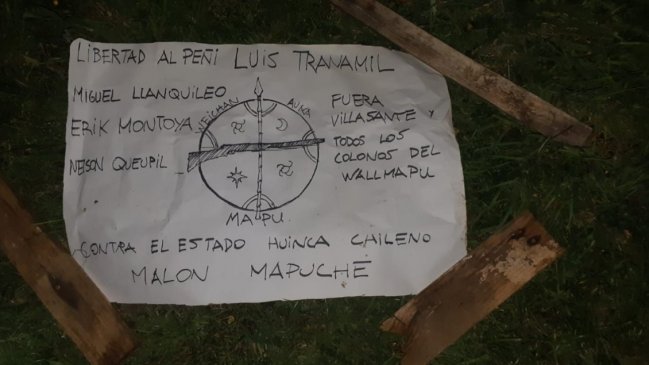 LIBERTAD AL PEÑI LUIS TRANAMIL
MIGUEL LLANQUILEO
ERIK MONTOYA
NELSON QUEUPIL
WEICHAN
AUKA
MAPU.
FUERA
VILLASANTE Y
TODOS LOS
COLONOS DEL
WALLMAPU
CONTRA EL ESTADO HUINCA CHILENO
MALON MAPUCHE